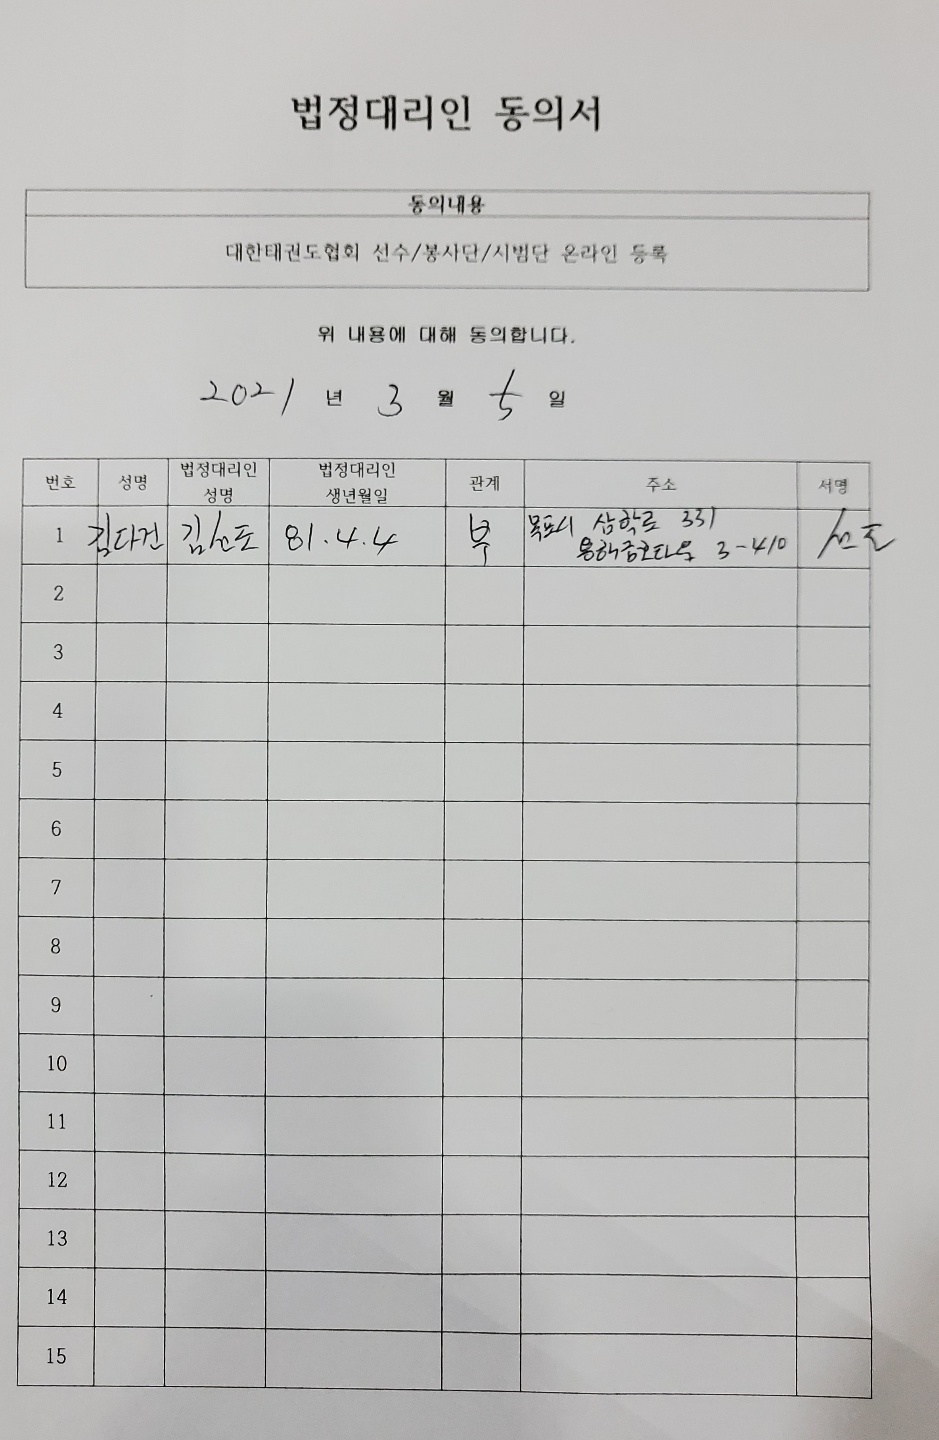 법정대리인 동의서
동의내용
대한태권도협회 선수/봉사단/시범단 온라인 등록
위 내용에 대해 동의합니다.
2021 년 3 월 5 일
번호 성명 법정대리인 성명 법정대리인 생년월일 관계 주소 서명
1 김다건 81.4.4 부 목포시 삼학로 331
3-410
2
3
4
5
6
7
8
9
10
11
12
13
14
15